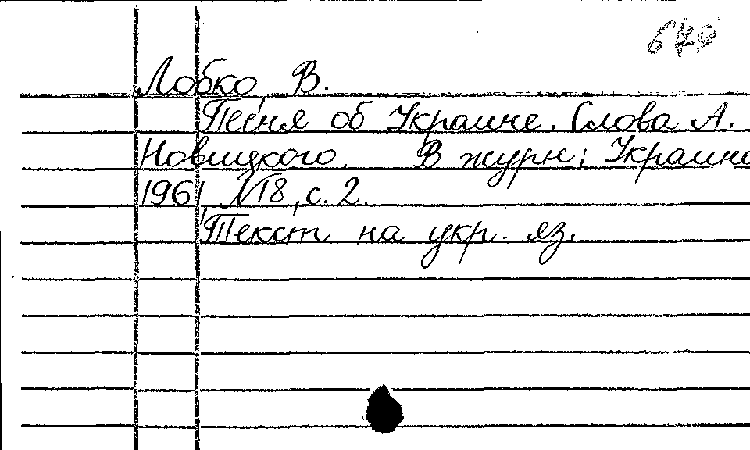 Лобко, В.
Песня об Украине. Слова А.
Новицкого. В журн.: Украина
1961, №18, с. 2.
Текст на укр. яз.